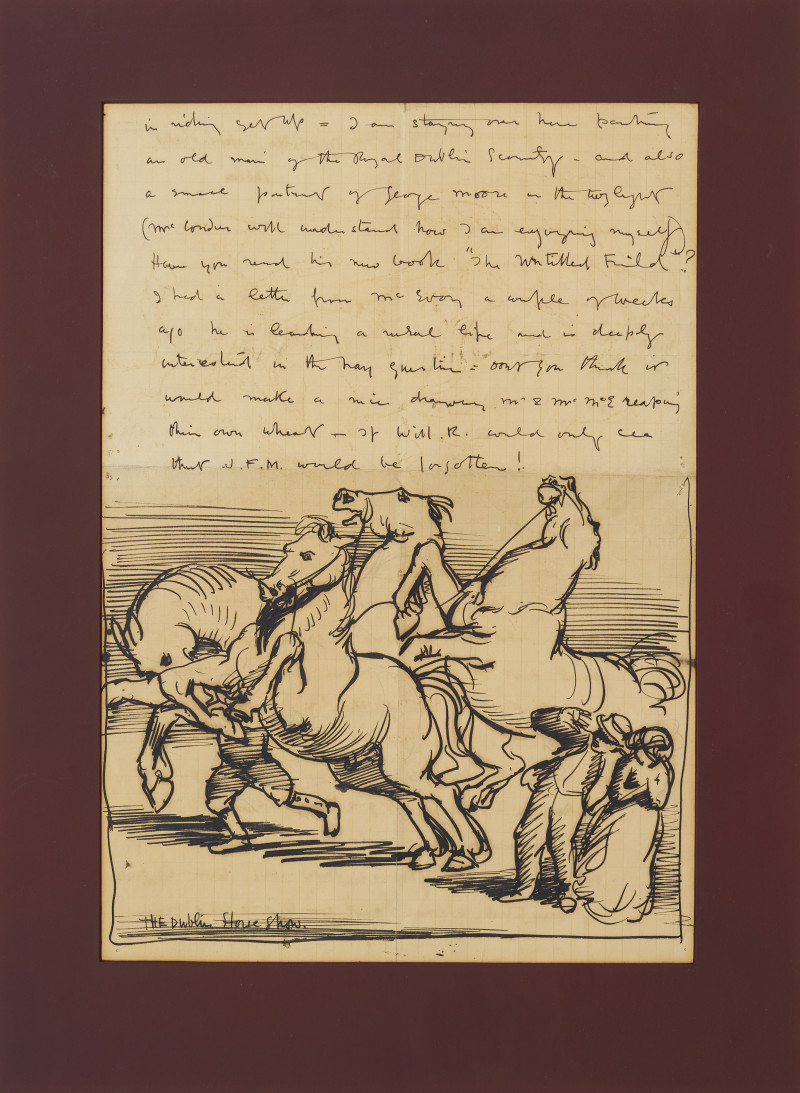 in riding get up = I am staying over here painting
an old man of the Royal Dublin Society - and also
a small portrait of George Moore in the twylight
(Mrs Conder will understand how I am enjoying myself)
Have you read his new book "The Untilled Feild"?
I had a letter from McEvoy a couple of weeks
ago he is leading a rural life and is deeply
interested in the hay question = dont you think it
would make a nice drawing Mr & Mrs McE reaping
their own wheat - If Will. R. could only see
that J.F.M. would be forgotten!
THE Dublin Horse Show.